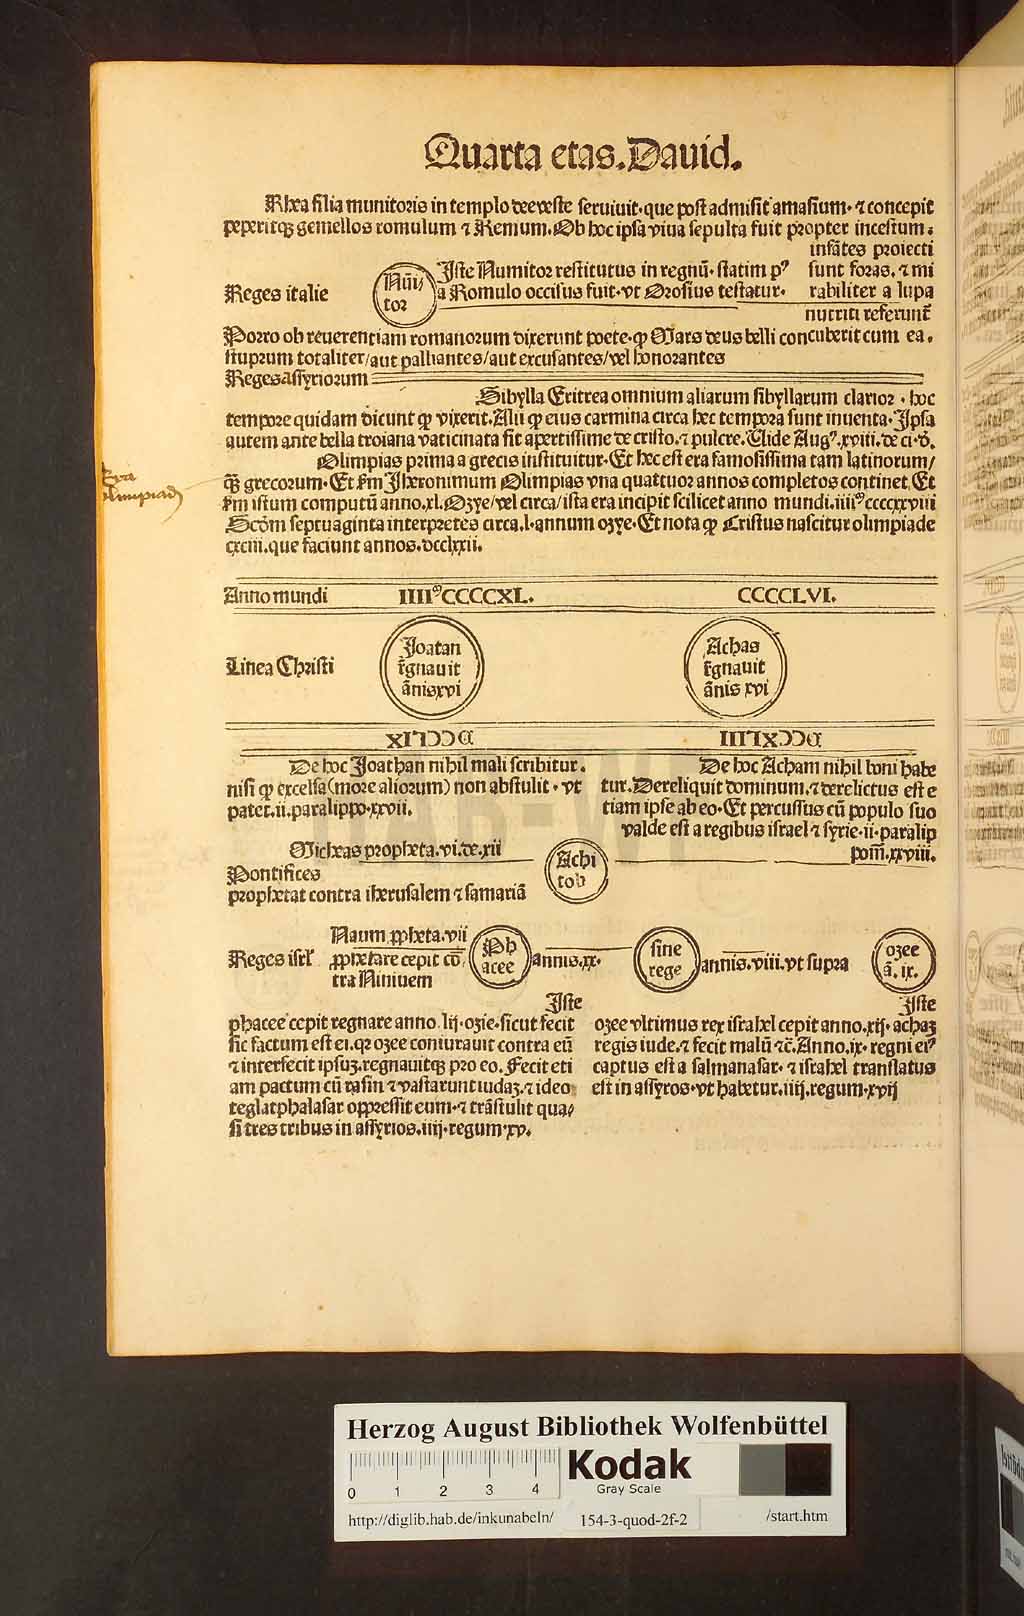 Quarta etas. Dauid.
Rhea filia munitoris in templo dee veste seruiuit. que post admisit amasium. ⁊ concepit
peperitqꝫ gemellos romulum ⁊ Remum. Ob hoc ipsa viua sepulta fuit propter incestum.
infātes proiecti
sunt foras. ⁊ mi
rabiliter a lupa
nutriti referunt̄
Reges italie
Nūi/
tor
Iste Numitor restitutus in regnū. statim pꝰ
a Romulo occisus fuit. vt Orosius testatur.
Porro ob reuerentiam romanorum dixerunt poete. ꝙ Mars deus belli concuberit cum ea.
stuprum totaliter/aut palliantes/aut excusantes/vel honorantes
Reges assyriorum
Sibylla Eritrea omnium aliarum sibyllarum clarior. hoc
tempore quidam dicunt ꝙ vixerit. Alii ꝙ eius carmina circa hec tempora sunt inuenta. Ipsa
autem ante bella troiana vaticinata sit apertissime de cristo. ⁊ pulcre. Vide Augꝰ. xviii. de ci. d̄.
Olimpias prima a grecis instituitur. Et hec est era famosissima tam latinorum/
qꝫ grecorum. Et s̄m Jheronimum Olimpias vna quattuor annos completos continet. Et
s̄m istum computū anno. xl. Ozye/vel circa/ista era incipit scilicet anno mundi. iiiiᵐ ccccxxviii
Scd̄m septuaginta interpretes circa. l. annum ozye. Et nota ꝙ Cristus nascitur olimpiade
cxciii. que faciunt annos. dcclxxii.
Era
olimpiad
Anno mundi IIIIᵐCCCCXL. CCCCLVI.
Linea Christi
Joatan
r̄gnauit
ānis xvi
Achas
r̄gnauit
ānis xvi
DCCLIX DCCXLIII
De hoc Joathan nihil mali scribitur.
nisi ꝙ excelsa (more aliorum) non abstulit. vt
patet. ii. paralippo. xxvii.
De hoc Acham nihil boni habe
tur. Dereliquit dominum. ⁊ derelictus est e
tiam ipse ab eo. Et percussus cū populo suo
valde est a regibus israel ⁊ syrie. ii. paralip
pom̄. xxviii.
Micheas propheta. vi. de. xii
Pontifices
Achi
tob
prophetat contra iherusalem ⁊ samariā
Naum ꝓpheta. vii
Reges isrl̄ ꝓphetare cepit cō
tra Niniuem
Ph
acee
annis. xx.
sine
rege
annis. viii. vt supra
ozee
ā. ix.
Iste
phacee cepit regnare anno. lij. ozie. sicut fecit
sic factum est ei. qꝛ ozee coniurauit contra eū
⁊ interfecit ipsuꝫ. regnauitqꝫ pro eo. Fecit eti
am pactum cū rasin ⁊ vastarunt iudaꝫ. ⁊ ideo
teglatphalasar oppressit eum. ⁊ trāstulit qua/
si tres tribus in assyrios. iiij. regum. xv.
Iste
ozee vltimus rex israhel cepit anno. xij. achaꝫ
regis iude. ⁊ fecit malū ⁊c̄. Anno. ix. regni eiꝰ
captus est a salmanasar. ⁊ israhel translatus
est in assyros. vt habetur. iiij. regum. xvij
HAB-WF
Herzog August Bibliothek Wolfenbüttel
0 1 2 3 4
Kodak
Gray Scale
http://diglib.hab.de/inkunabeln/ 154-3-quod-2f-2 /start.htm